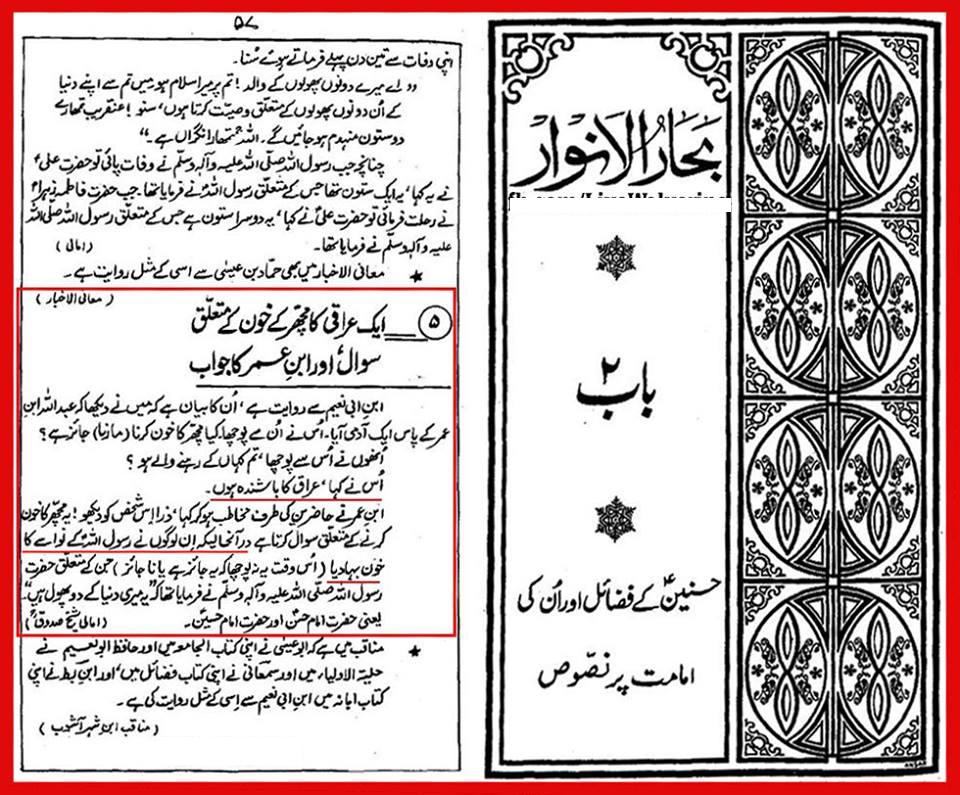 بحارُالانوار
fb.com/
باب ۲
حسنینؑ کے فضائل اور اُن کی
امامت پر نصّوص
۵۷
اپنی وفات سے تین دن پہلے فرماتے ہوئے سُنا۔
”اے میرے دونوں پھولوں کے والد! تم پر میرا سلام ہو۔ میں تم سے اپنے دنیا
کے اُن دونوں پھولوں کے متعلق وصیّت کرتا ہوں، سنو! عنقریب تمھارے
دو ستون منہدم ہو جائیں گے۔ اللہ تمھارا نگراں ہے۔“
چنانچہ جب رسول اللہ صلّی اللہ علیہ وآلہ وسلّم نے وفات پائی تو حضرت علیؑ
نے یہ کہا، یہ ایک ستون تھا جس کے متعلق رسول اللہؐ نے فرمایا تھا۔ جب حضرت فاطمہ زہراؑ
نے رحلت فرمائی تو حضرت علیؑ نے کہا، یہ دوسرا ستون ہے جس کے متعلق رسول اللہ صلّی اللہ
علیہ وآلہ وسلّم نے فرمایا تھا۔ (امالی)
★ معانی الاخبار میں بھی حمّاد بن عیسٰی سے اسی کے مثل روایت ہے۔
(معانی الاخبار)
۵ ــــ ایک عراقی کا مچھّر کے خون کے متعلّق
سوال، اور ابنِ عمر کا جواب
ابن ابی نعیم سے روایت ہے، اُن کا بیان ہے کہ میں نے دیکھا کہ عبداللہ ابنِ
عمر کے پاس ایک آدمی آیا۔ اُس نے اُن سے پوچھا۔ کیا مچھّر کا خون کرنا (مارنا) جائز ہے؟
اُنھوں نے اُس سے پوچھا، تم کہاں کے رہنے والے ہو؟
اُس نے کہا، عراق کا باشندہ ہوں۔
ابنِ عمر نے حاضرین کی طرف مخاطب ہو کر کہا، ذرا اِس شخص کو دیکھو! یہ مچھّر کا خون
کرنے کے متعلق سوال کرتا ہے درآنحالیکہ اِن لوگوں نے رسول اللہؐ کے نواسے کا
خون بہا دیا (اُس وقت یہ نہ پوچھا کہ یہ جائز ہے یا نا جائز) جن کے متعلق حضرت
رسول اللہ صلّی اللہ علیہ وآلہ وسلّم نے فرمایا تھا کہ ”یہ میری دنیا کے دو پھول ہیں“۔
یعنی حضرت امام حسنؑ اور حضرت امام حسینؑ۔ (امالی شیخ صدوقؒ)
★ مناقب میں ہے کہ ابو عیسٰی نے اپنی کتاب الجامعہ میں اور حافظ ابو نعیم نے
حلیۃ الاولیاء میں اور سمعانی نے اپنی کتاب فضائل میں، اور ابنِ بطہ نے اپنی
کتاب ابانہ میں ابنِ ابی نعیم سے اِسی کے مثل روایت کی ہے۔
(مناقب ابن شہر آشوب)